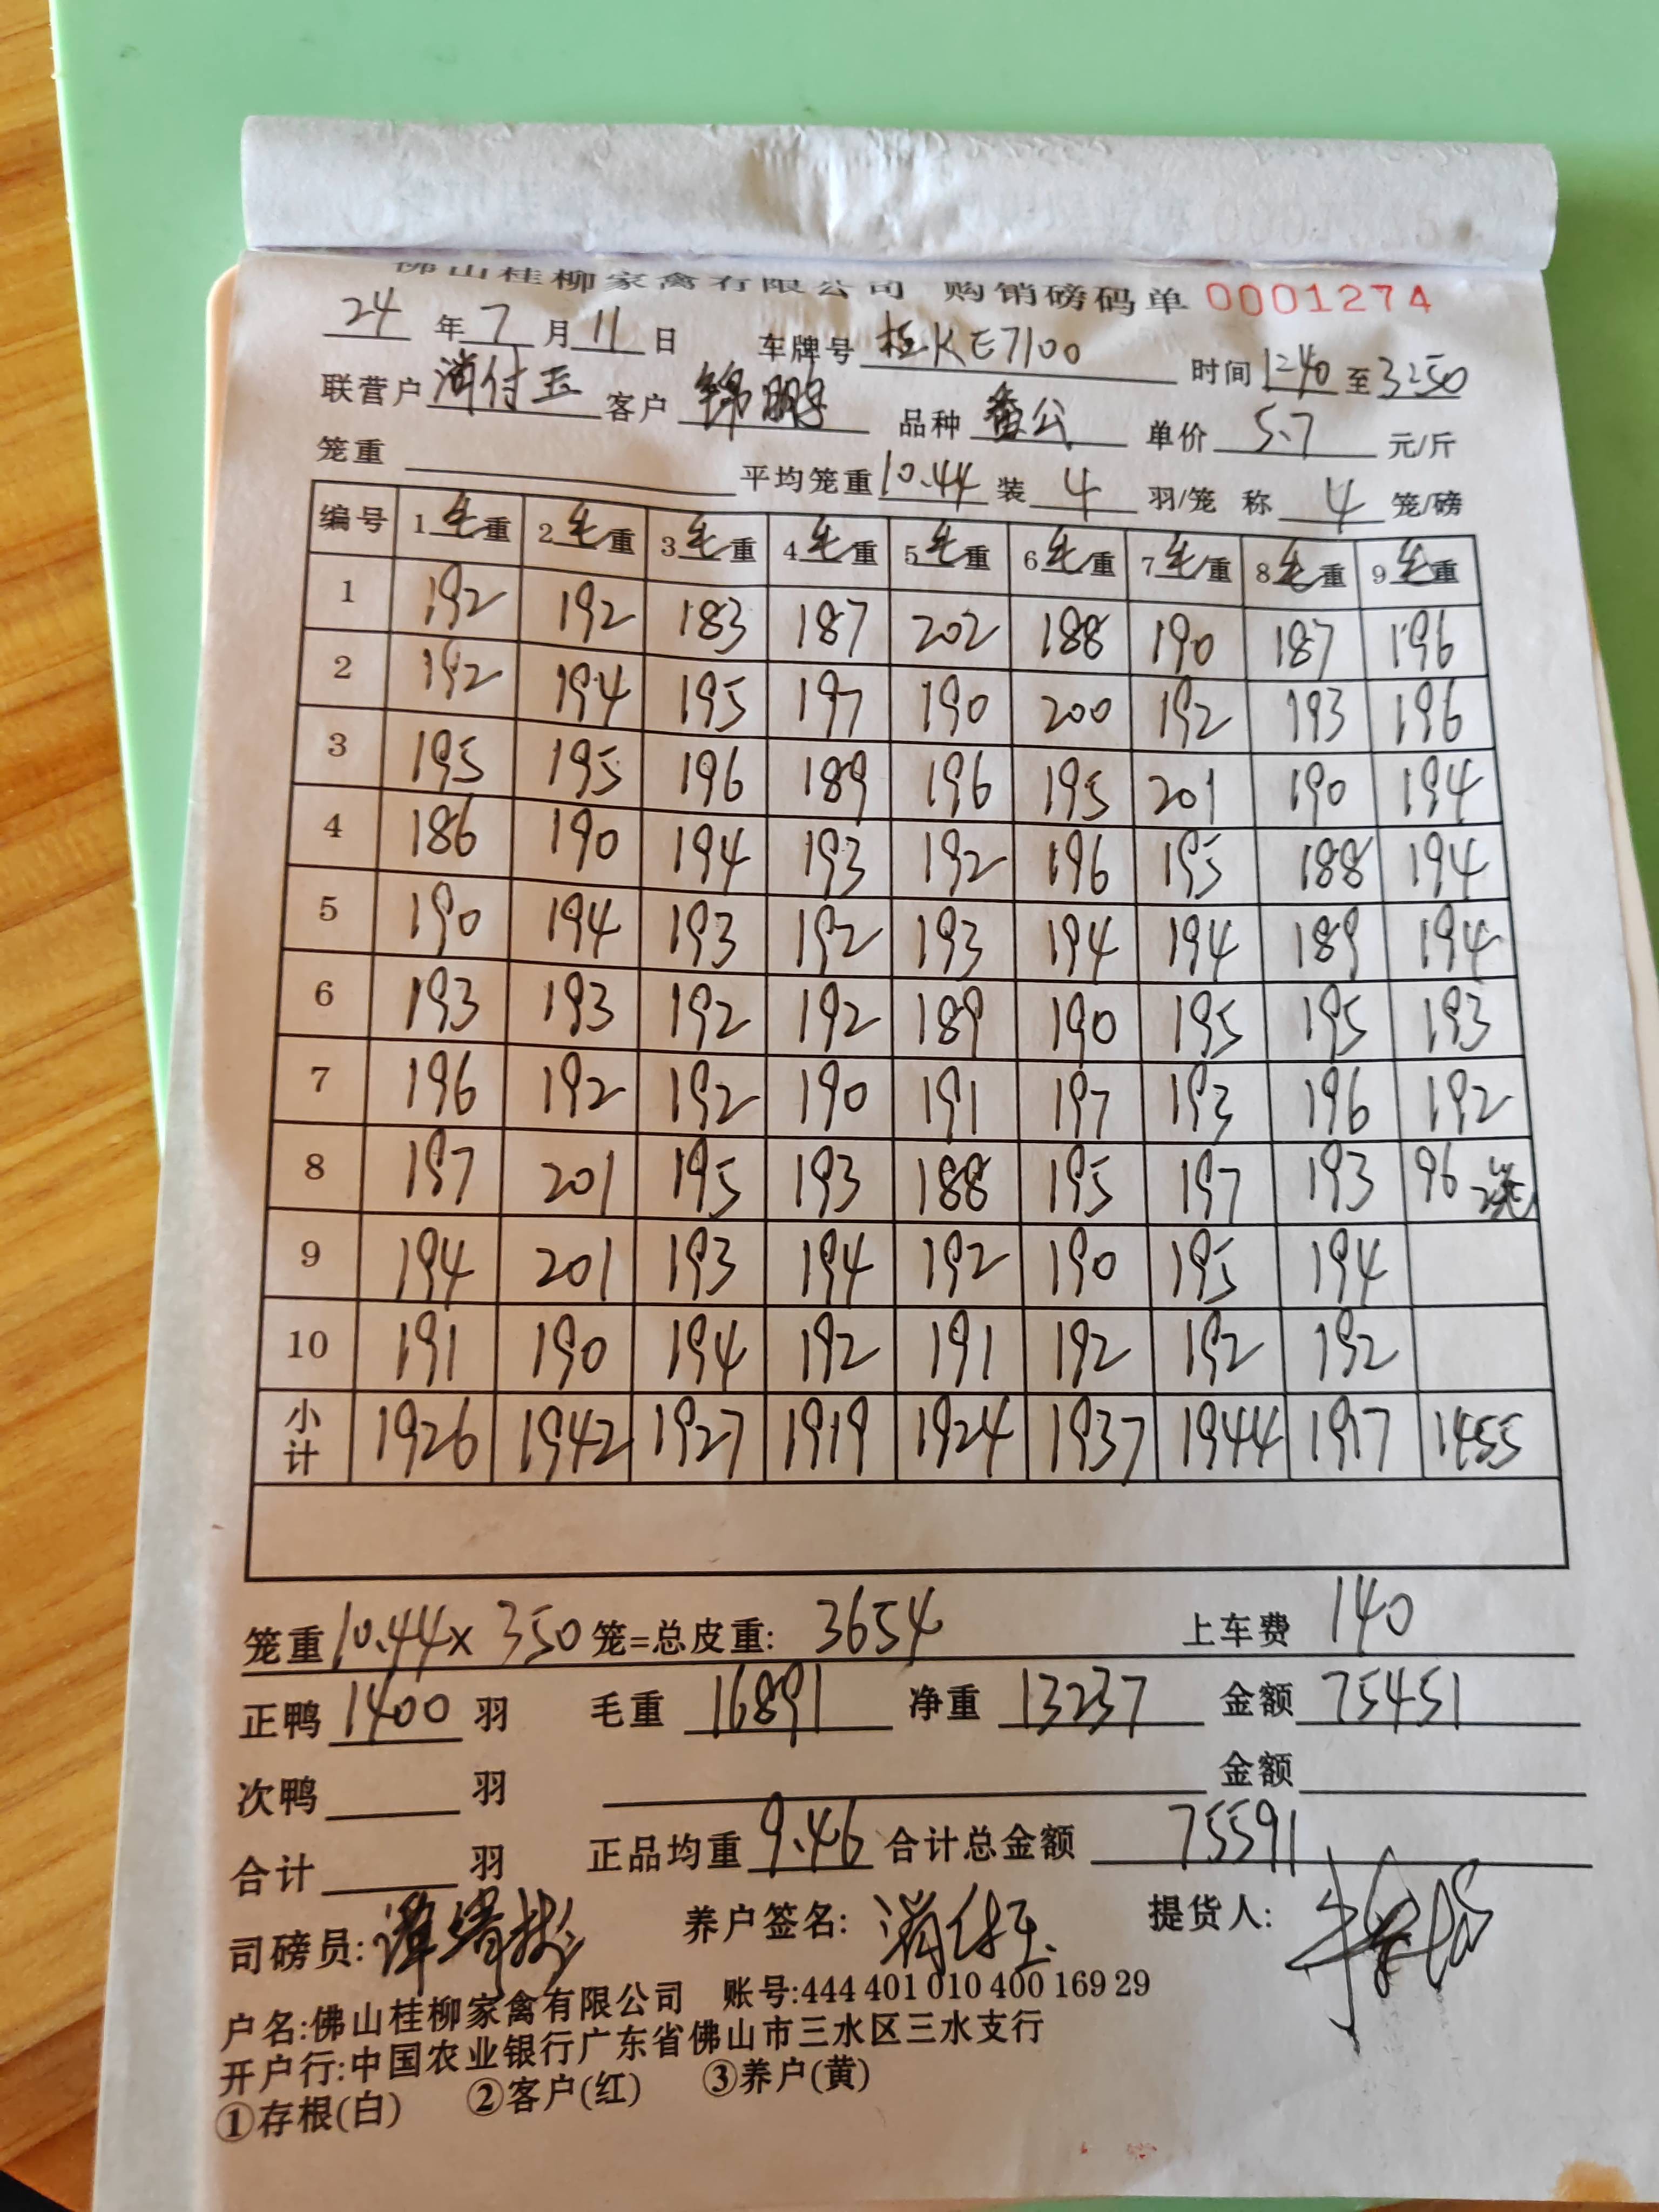 佛山桂柳家禽有限公司 购销磅码单 0001274
24 年 7 月 11 日 车牌号 桂KE7100 时间 1240 至 3250
联营户 付玉 客户 锦鹏 品种 番公 单价 5.7 元/斤
笼重 平均笼重 10.44 装 4 羽/笼 称 4 笼/磅
编号 1毛重 2毛重 3毛重 4毛重 5毛重 6毛重 7毛重 8毛重 9毛重
1 192 192 183 187 202 188 190 187 196
2 192 194 195 197 190 200 192 193 196
3 195 195 196 189 196 195 201 190 194
4 186 190 194 193 192 196 195 188 194
5 190 194 193 192 193 194 194 189 194
6 193 193 192 192 189 190 195 195 193
7 196 192 192 190 191 197 193 196 192
8 197 201 195 193 188 195 197 193 96 2笼
9 194 201 193 194 192 190 195 194
10 191 190 194 192 191 192 192 192
小计 1926 1942 1927 1919 1924 1937 1944 1917 1455
笼重 10.44 × 350 笼=总皮重: 3654 上车费 140
正鸭 1400 羽 毛重 16891 净重 13237 金额 75451
次鸭 羽 金额
合计 羽 正品均重 9.46 合计总金额 75591
司磅员: 养户签名: 付玉 提货人:
户名:佛山桂柳家禽有限公司 账号:444 401 010 400 169 29
开户行:中国农业银行广东省佛山市三水区三水支行
①存根(白) ②客户(红) ③养户(黄)